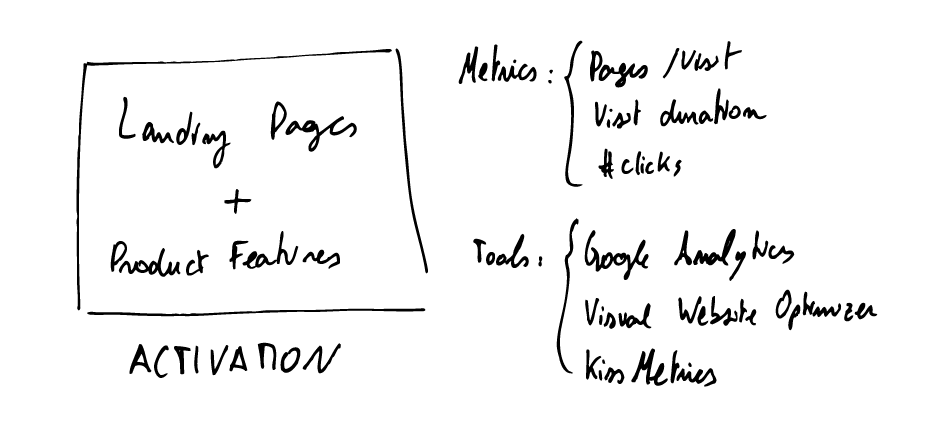 Landing Pages
+
Product Features
ACTIVATION
Metrics: { Pages / Visit
Visit duration
# clicks
Tools: { Google Analytics
Visual Website Optimizer
KissMetrics